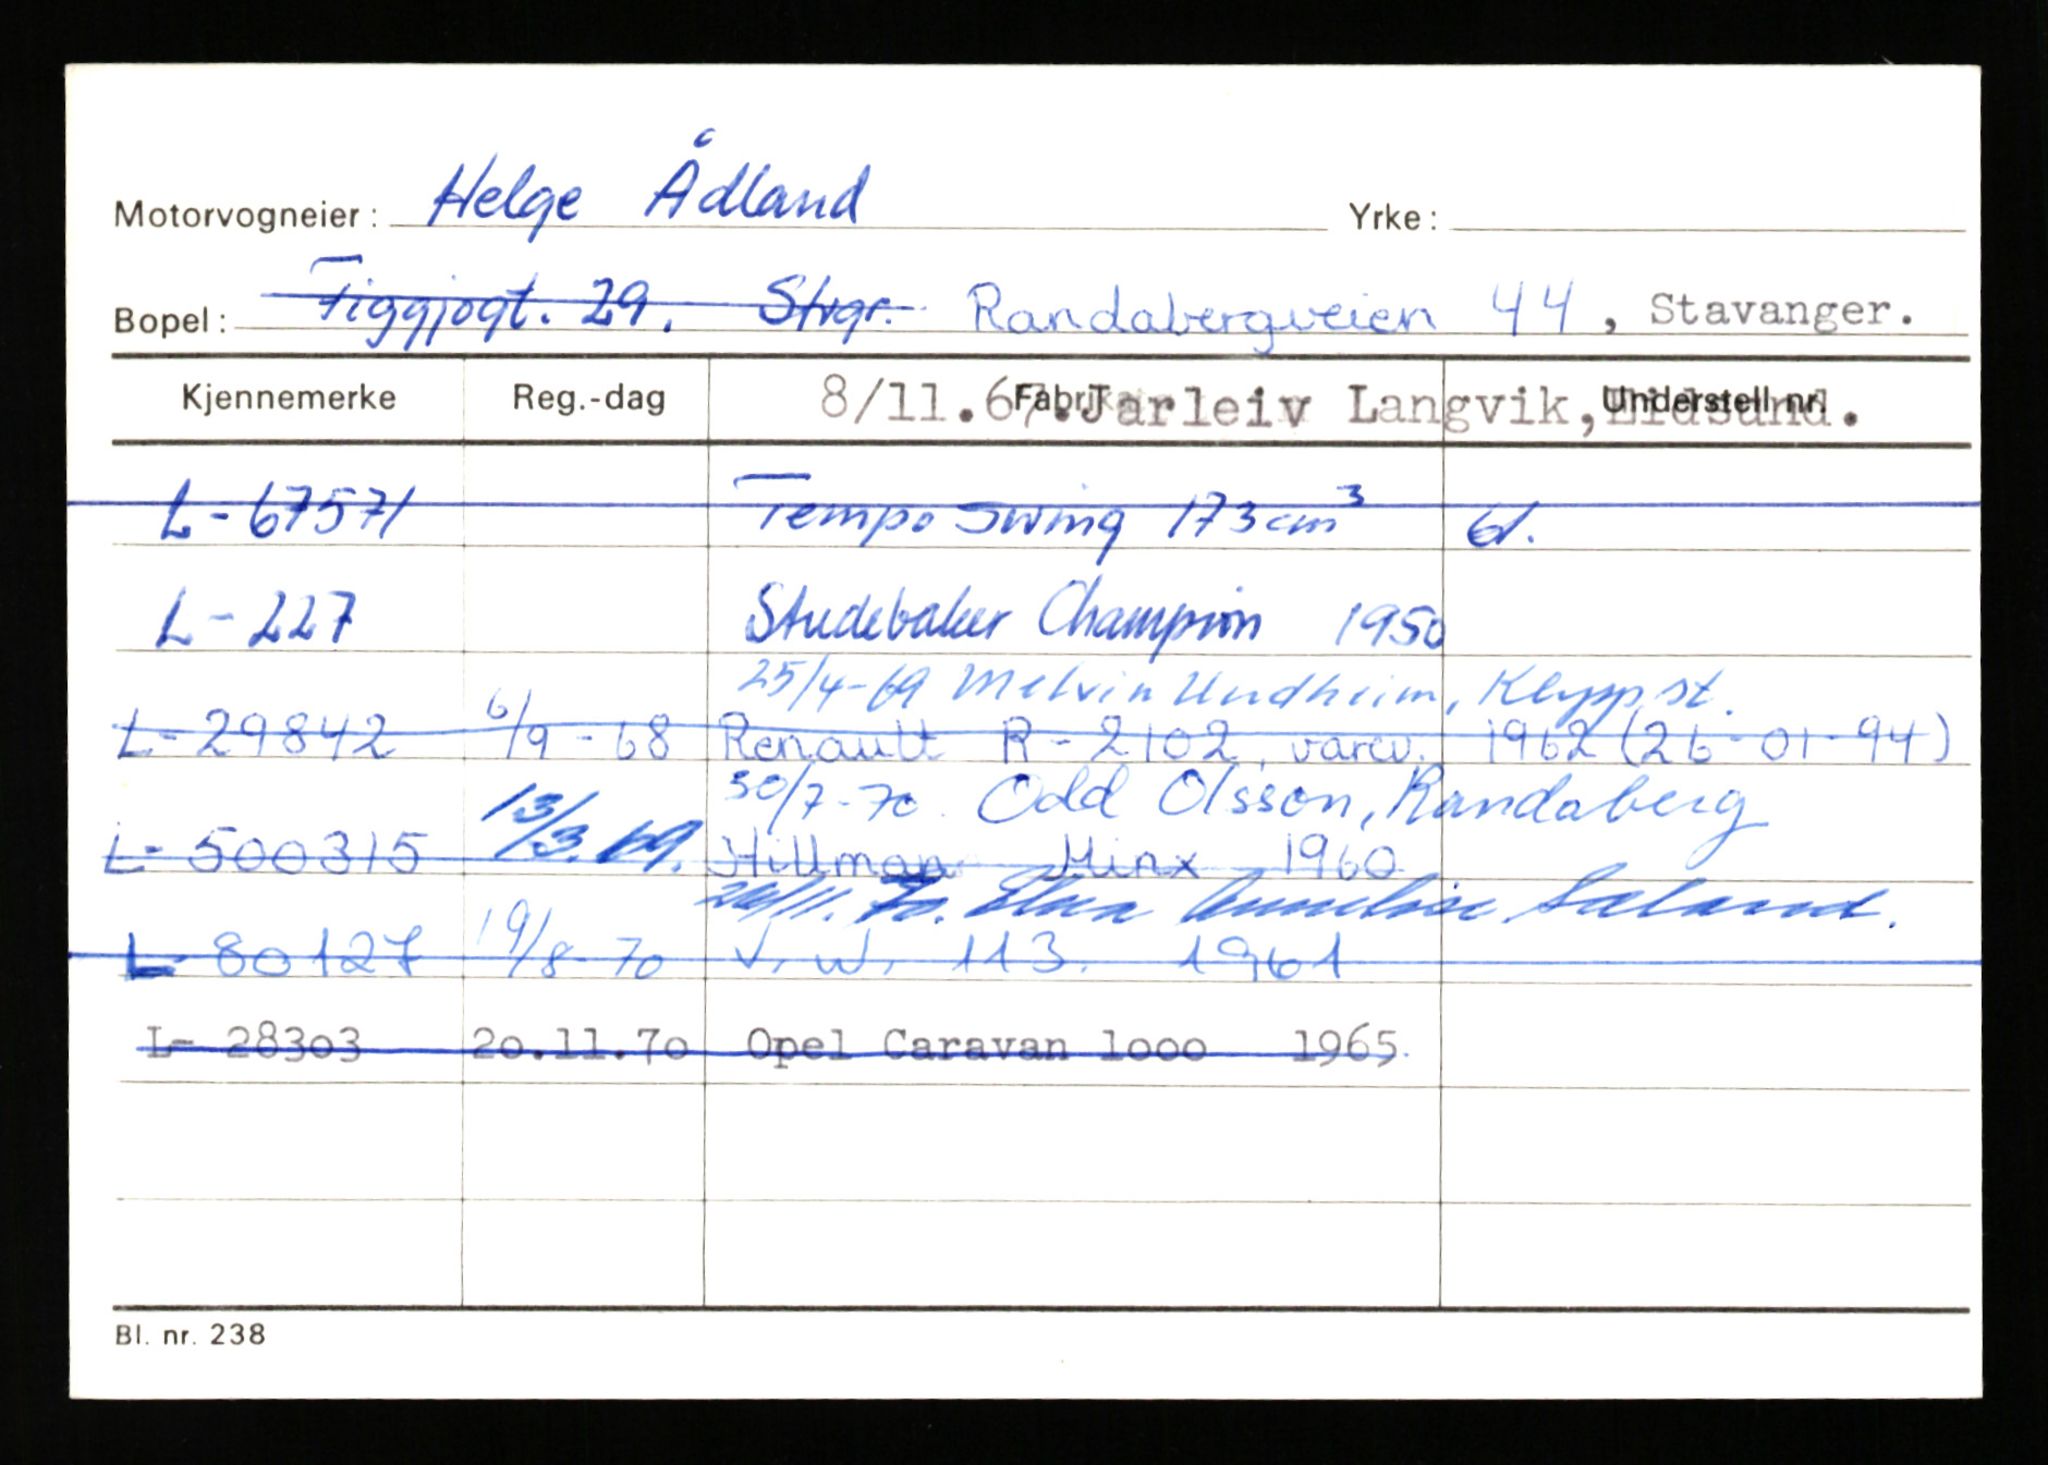 Motorvogneier: Helge Ådland Yrke:
Bopel: Figgjogt. 29. Stvgr. Randabergveien 44, Stavanger.
Kjennemerke Reg.-dag Fabrikat Understell nr.
8/11.67. Jarleiv Langvik,
L-67571 Tempo Swing 173 cm³ 61.
L-227 Studebaker Champion 1950
25/4-69 Melvin Undheim, Klepp st.
L-29842 6/9-68 Renault R-2102, varev. 1962 (26-01-94)
30/7-70. Odd Olsson, Randaberg
L-500315 13/3.69. Hillman Minx 1960
20/11.70. Annelise
L-80127 19/8-70 V.W. 113. 1961
L-28303 20.11.70 Opel Caravan 1000 1965.
Bl. nr. 238